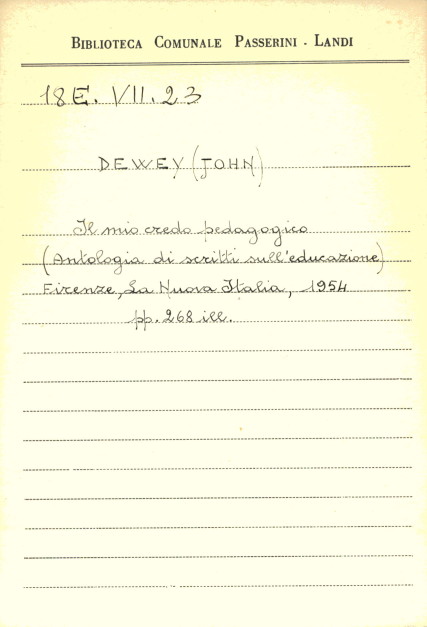 BIBLIOTECA COMUNALE PASSERINI - LANDI
18E. VII. 23
DEWEY (JOHN)
Il mio credo pedagogico
(Antologia di scritti sull'educazione)
Firenze, La Nuova Italia, 1954
pp. 268 ill.